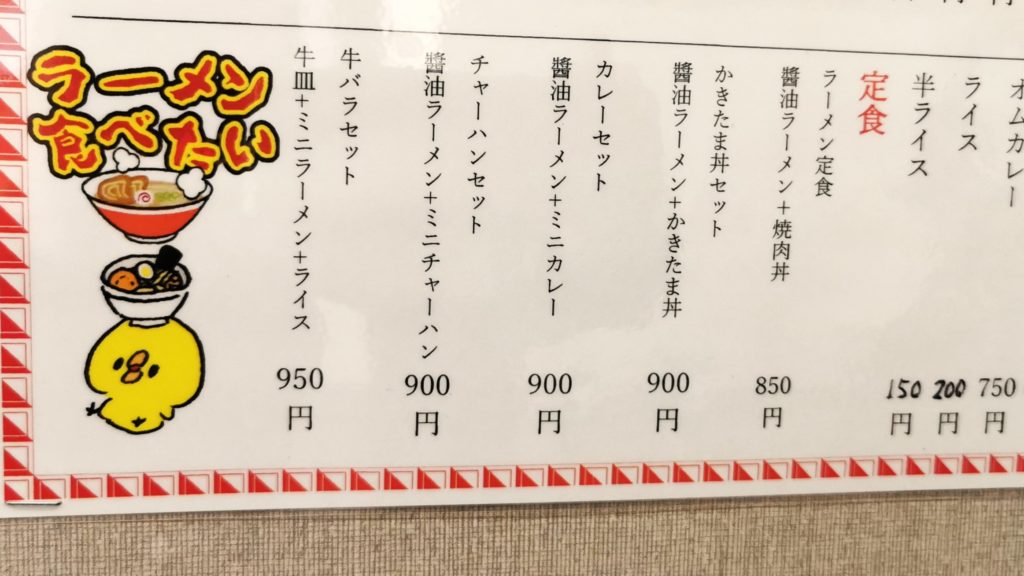 オムカレー
750円
ライス
200円
半ライス
150円
定食
ラーメン定食
醬油ラーメン+焼肉丼
850円
かきたま丼セット
醬油ラーメン+かきたま丼
900円
カレーセット
醬油ラーメン+ミニカレー
900円
チャーハンセット
醬油ラーメン+ミニチャーハン
900円
牛バラセット
牛皿+ミニラーメン+ライス
950円
ラーメン
食べたい